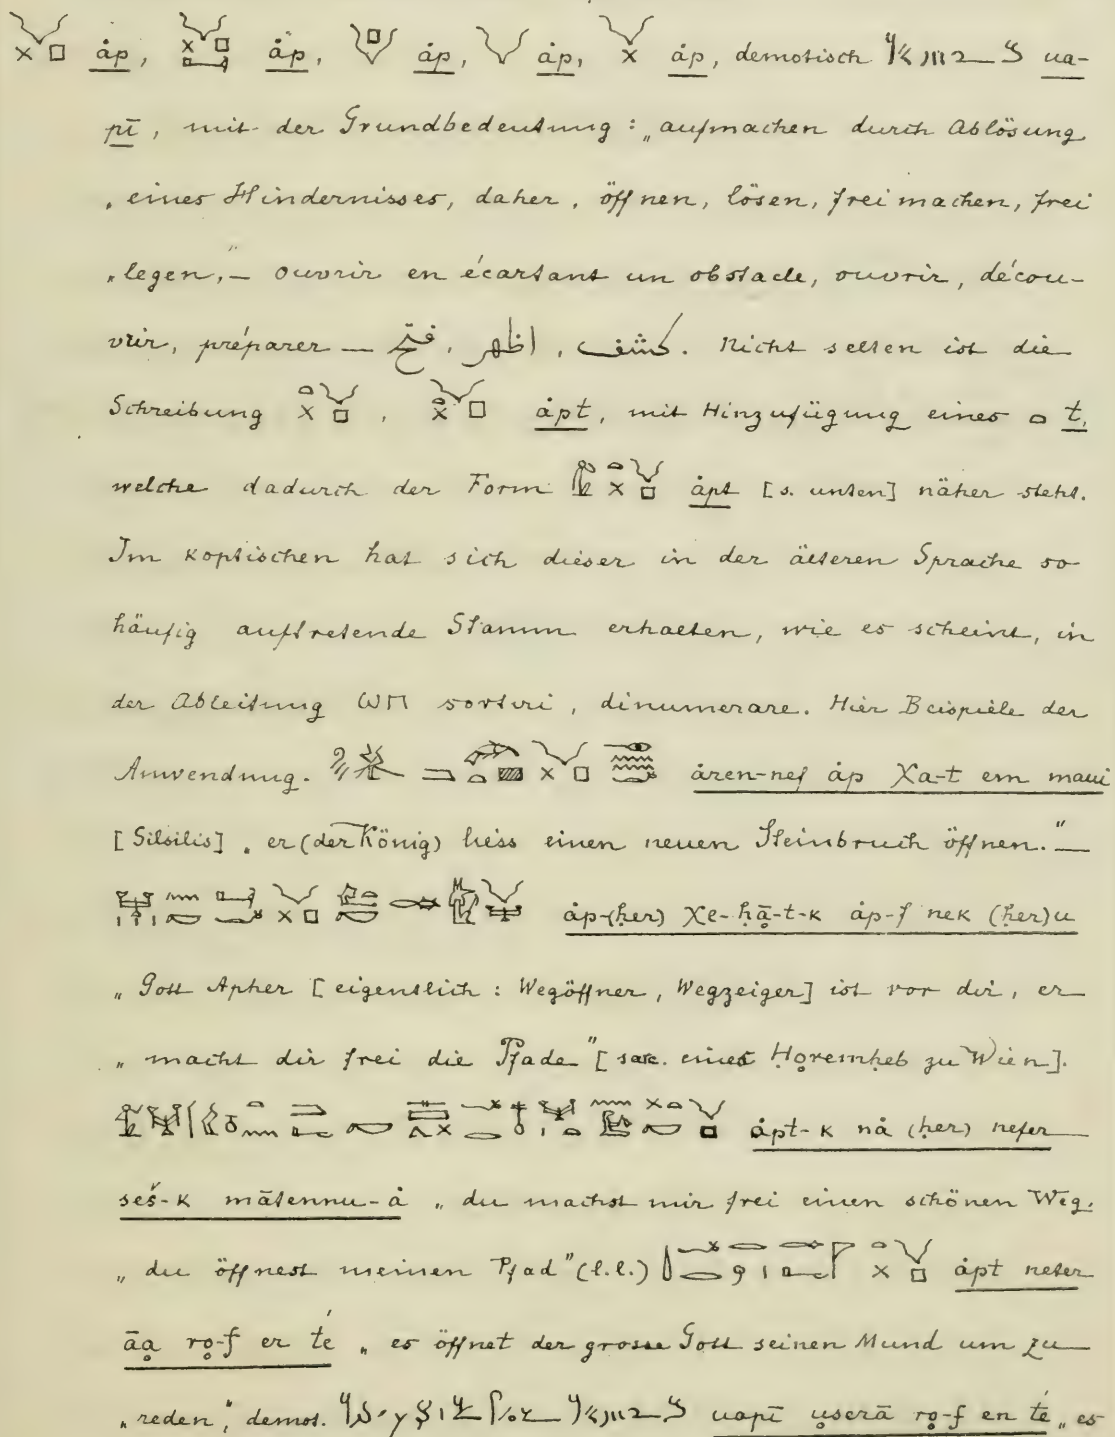 āp, āp, āp, āp, āp, demotisch ua-
pī, mit der Grundbedeutung: „aufmachen durch Ablösung
„eines Hindernisses, daher, öffnen, lösen, frei machen, frei
„legen,“ – ouvrir en écartant un obstacle, ouvrir, décou-
vrir, préparer — فتح, اظهر, كشف. Nicht selten ist die
Schreibung , āpt, mit Hinzufügung eines t,
welche dadurch der Form āpt [s. unten] näher steht.
Im koptischen hat sich dieser in der älteren Sprache so
häufig auftretende Stamm erhalten, wie es scheint, in
der Ableitung ⲱⲡ sortiri, dinumerare. Hier Beispiele der
Anwendung. åren-nef åp χa-t em maui
[Silsilis] „er (der König) liess einen neuen Steinbruch öffnen.“ —
åp-(ḥer) χe-ḥā-t-k åp-f nek (ḥer)u
„Gott Apher [eigentlich: Wegöffner, Wegzeiger] ist vor dir, er
„macht dir frei die Pfade“ [sarc. eines Horemheb zu Wien].
åpt-k nå (ḥer) nefer
seš-k mātennu-å „du machst mir frei einen schönen Weg,
„du öffnest meinen Pfad“ (l.l.) åpt neter
āa ro-f er té „es öffnet der grosse Gott seinen Mund um zu
„reden“, demot. uapī userā ro-f en té „es